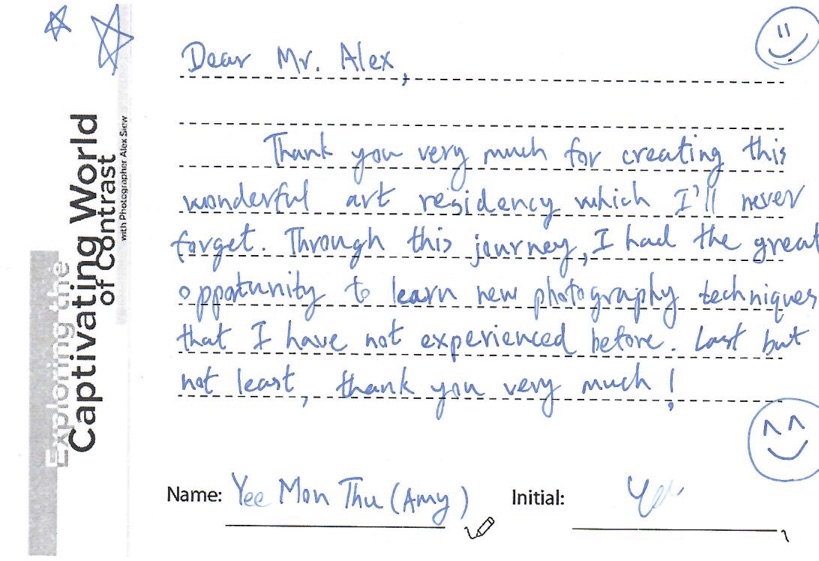 Exploring the
Captivating World
of Contrast
with Photographer Alex Siew
Dear Mr. Alex,
Thank you very much for creating this
wonderful art residency which I'll never
forget. Through this journey, I had the great
opportunity to learn new photography techniques
that I have not experienced before. Last but
not least, thank you very much!
Name: Yee Mon Thu (Amy)
Initial: